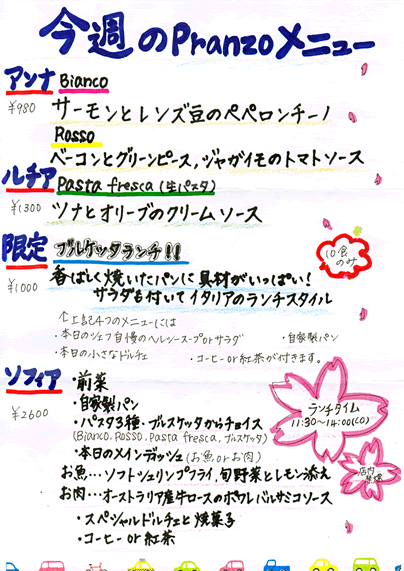 今週のPranzoメニュー
アンナ Bianco
¥980 サーモンとレンズ豆のペペロンチーノ
Rosso
ベーコンとグリーンピース,ジャガイモのトマトソース
ルチア Pasta fresca (生パスタ)
¥1300 ツナとオリーブのクリームソース
限定 ブルケッタランチ!!
10食のみ
¥1000 香ばしく焼いたパンに具材がいっぱい!
サラダも付いてイタリアのランチスタイル
↑上記4つのメニューには
・本日のシェフ自慢のヘルシースープorサラダ ・自家製パン
・本日の小さなドルチェ ・コーヒーor紅茶が付きます。
ソフィア ・前菜
¥2600 ・自家製パン
・パスタ3種・ブルスケッタからチョイス
(Bianco.Rosso.Pasta fresca.ブルスケッタ)
・本日のメインディッシュ(お魚orお肉)
お魚…ソフトシュリンプフライ,旬野菜とレモン添え
お肉…オーストラリア産牛ロースのポワレバルサミコソース
・スペシャルドルチェと焼菓子
・コーヒーor紅茶
ランチタイム
11:30〜14:00(LO)
店内禁煙